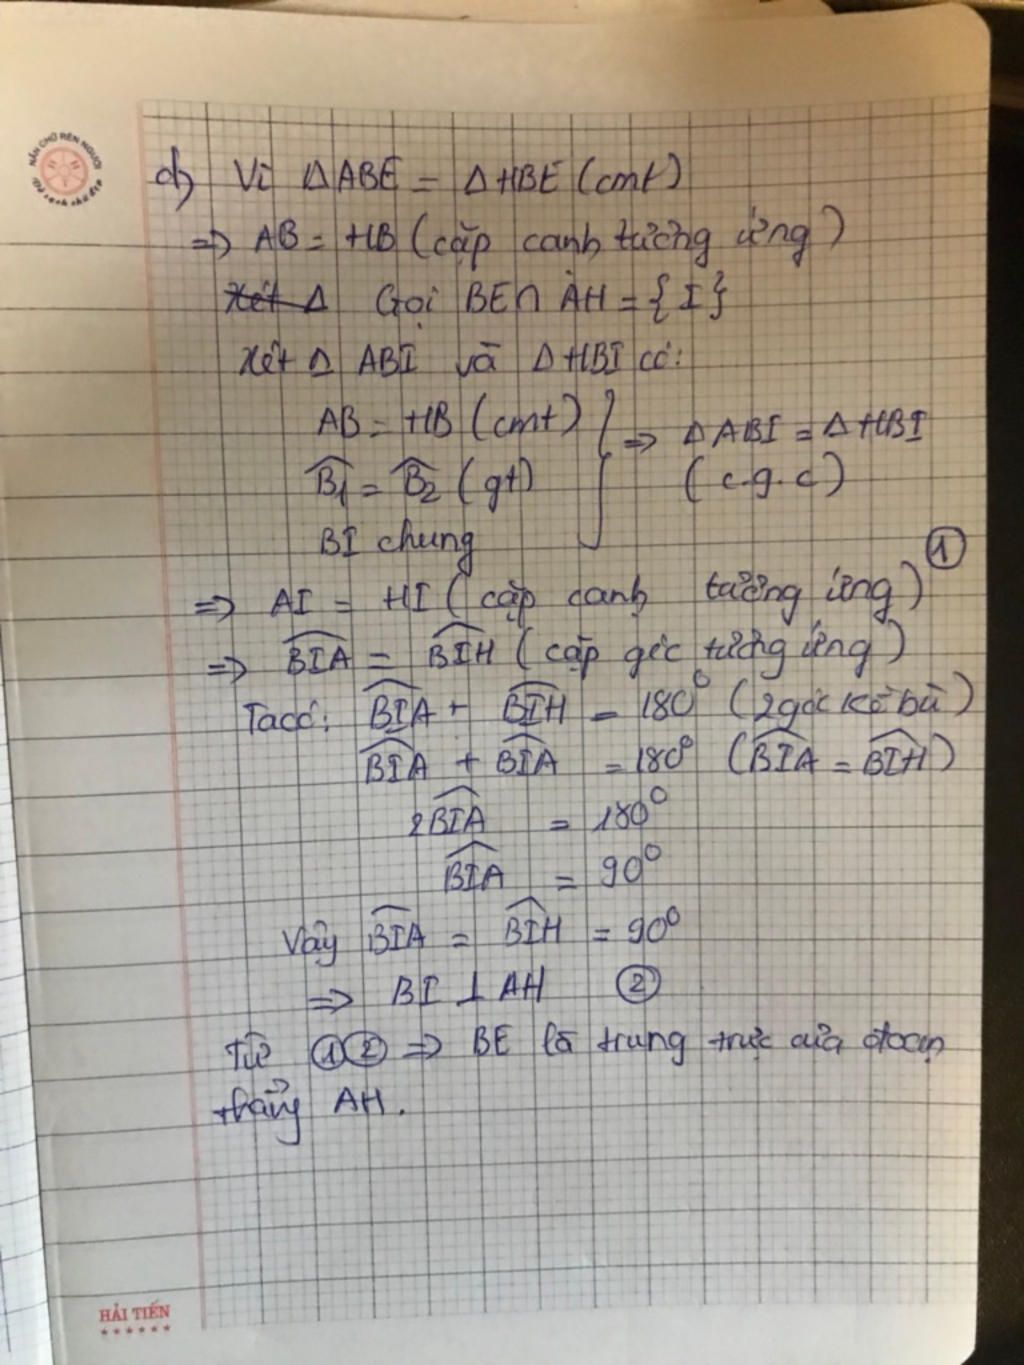 NẮN CHỮ RÈN NGƯỜI
Vở sạch chữ đẹp
d) Vì ΔABE = ΔHBE (cmt)
=> AB = HB (cặp cạnh tương ứng)
Xét Δ Gọi BE ∩ AH = {I}
Xét Δ ABI và ΔHBI có:
AB = HB (cmt)
=> ΔABI = ΔHBI
B̂1 = B̂2 (gt)
(c.g.c)
BI chung
=> AI = HI (cặp cạnh tương ứng) ①
=> \widehat{BIA} = \widehat{BIH} (cặp góc tương ứng)
Ta có: \widehat{BIA} + \widehat{BIH} = 180° (2 góc kề bù)
\widehat{BIA} + \widehat{BIA} = 180° (\widehat{BIA} = \widehat{BIH})
2\widehat{BIA} = 180°
\widehat{BIA} = 90°
Vậy \widehat{BIA} = \widehat{BIH} = 90°
=> BI ⊥ AH ②
Từ ①② => BE là trung trực của đoạn
thẳng AH.
HẢI TIẾN